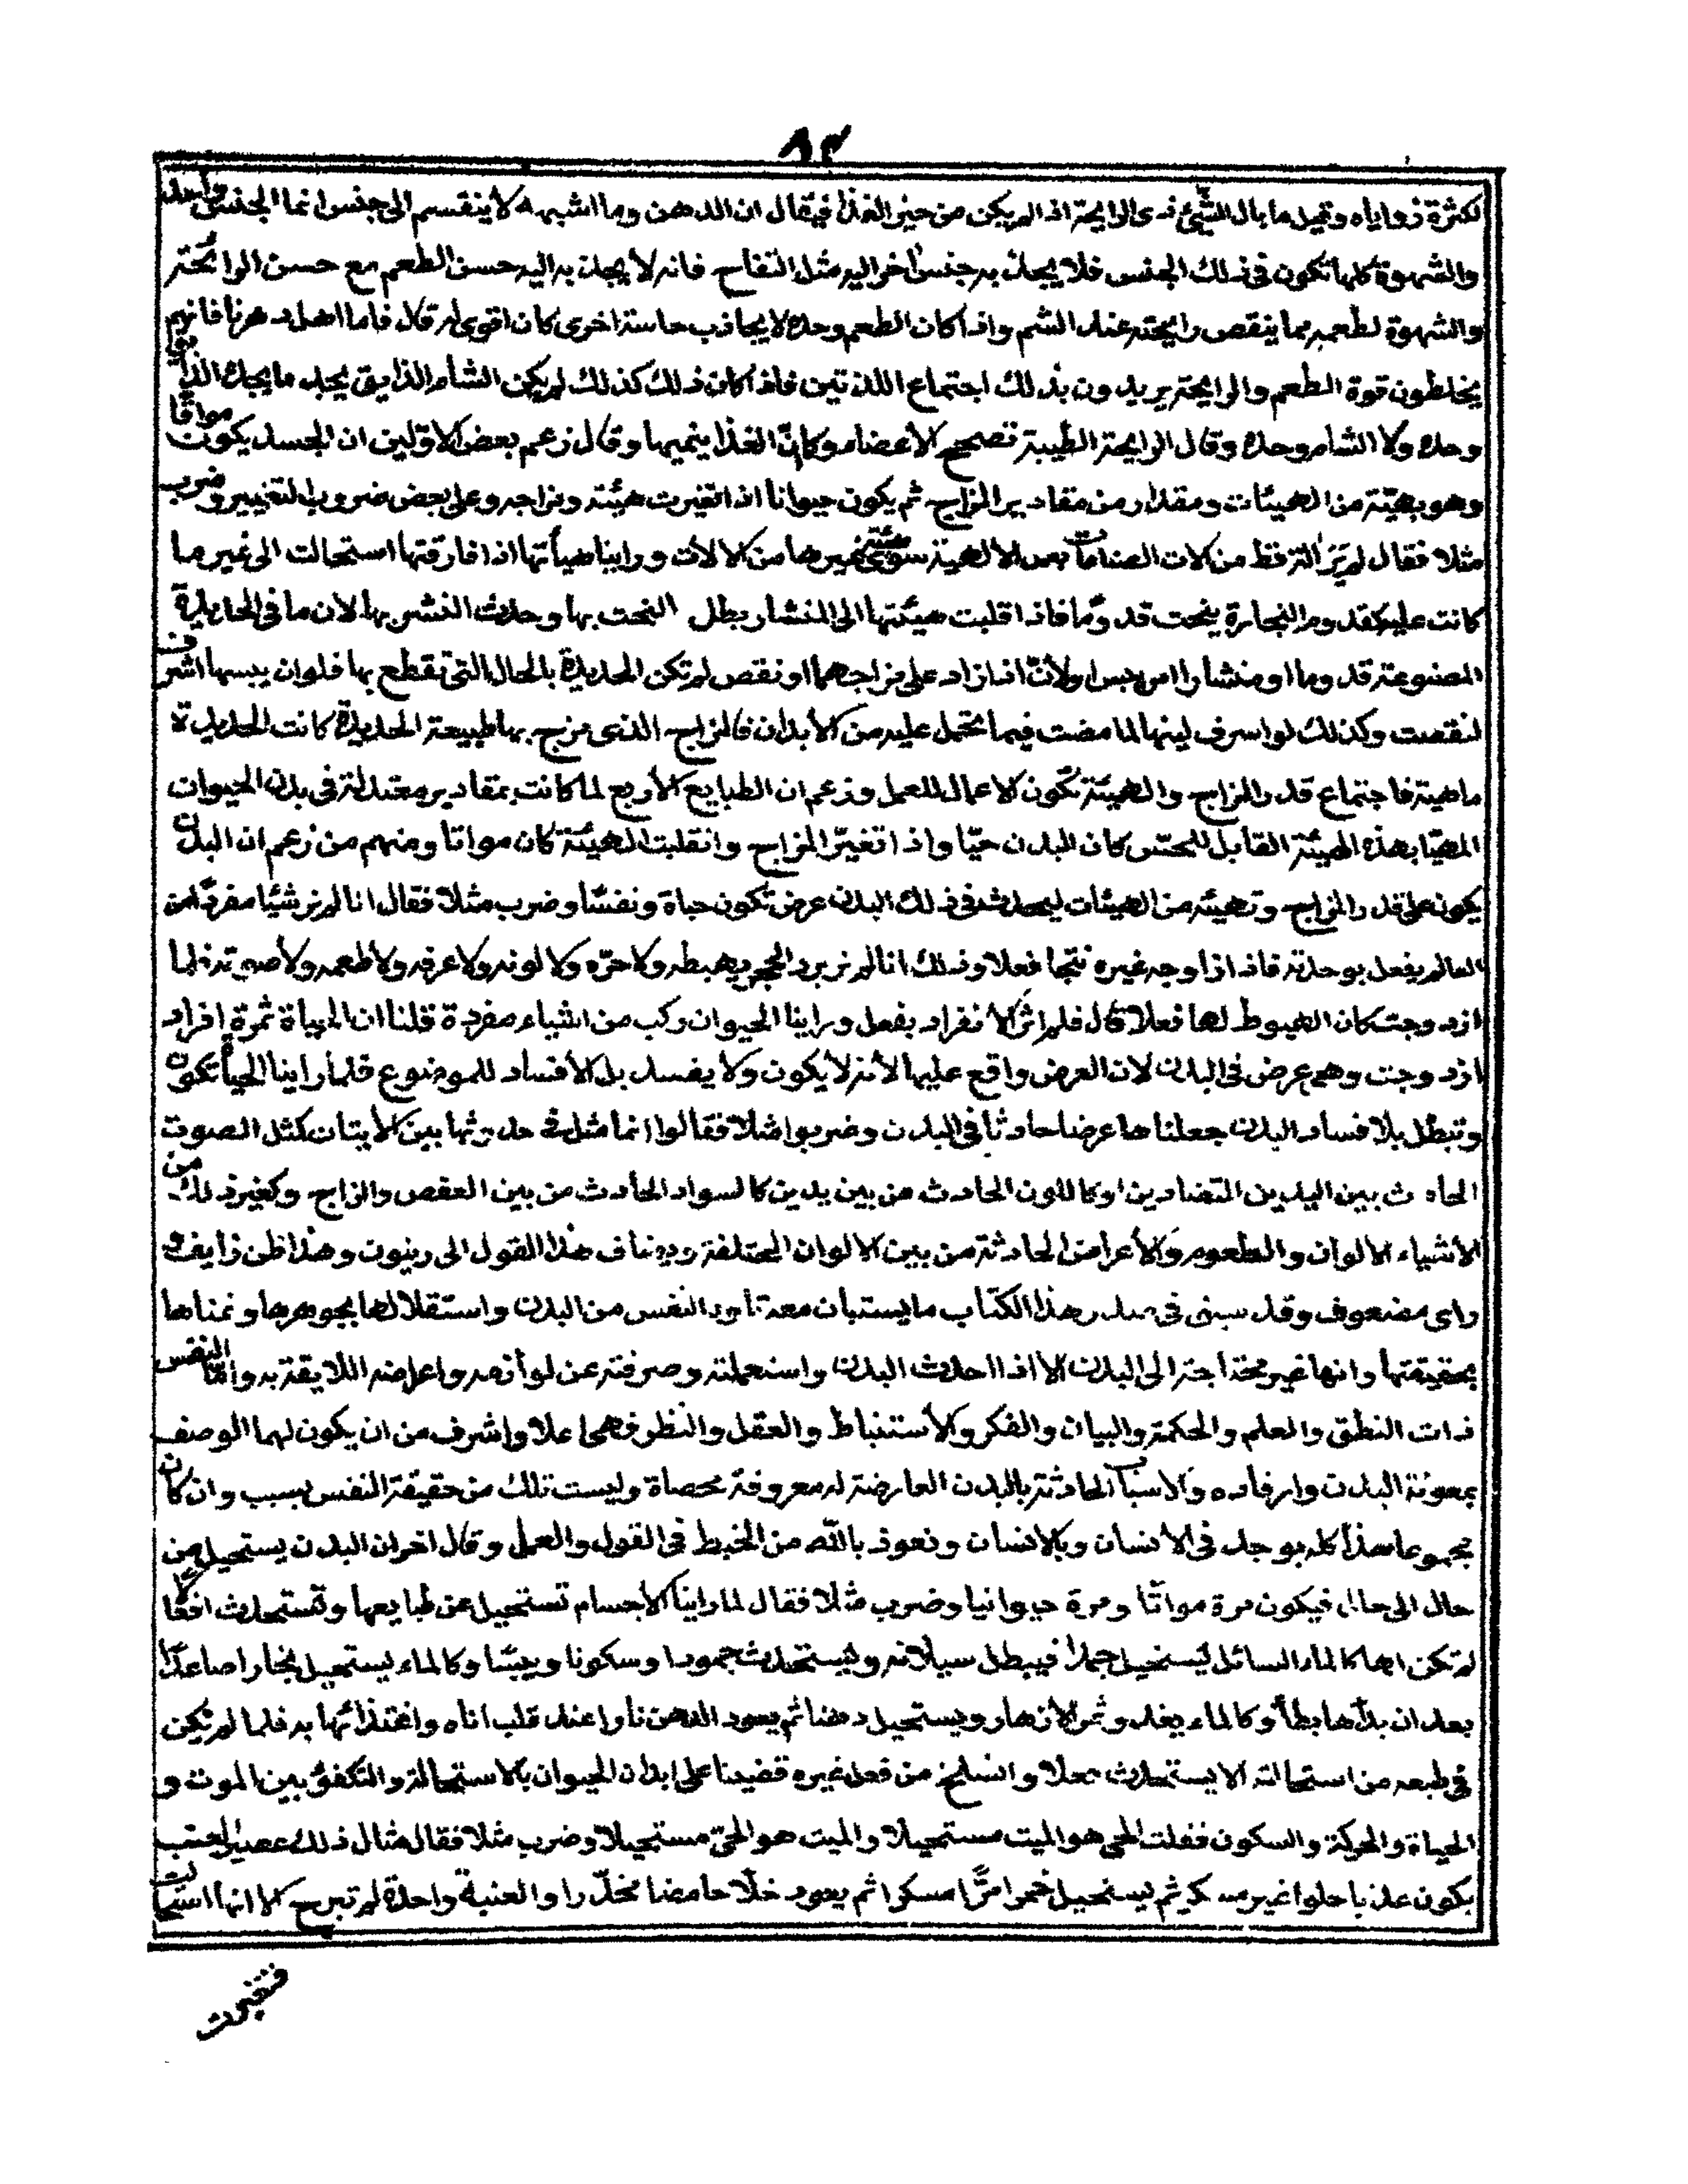 لكثرة زواياه وقيل ما بال الشئ ذى الرايحة اذا لم يكن من حيز الغذا فيقال ان الدهن وما اشبهه لا ينقسم الى جنس انما الجنس واحد
والشهوة كلها تكون فى ذلك الجنس فلا يجذب جنس اخر اليه مثل التفاح فانه لا يجذب اليه حسن الطعم مع حسن الرائحة
والشهوة لطعمه مما ينقص رايحته عند الشم واذا كان الطعم وحده لا يجاذب حاسة اخرى كان اقوى له قال فاما اهل دهرنا فانهم
يخلطون قوة الطعم والرايحة يريدون بذلك اجتماع اللذتين فاذا كان ذلك كذلك لم يكن الشام الذايق يجد ما يجد الذواق
وحده ولا الشام وحده وقال الرايحة الطيبة تصحح الأعضاء وكان الغذا ينميها وقال زعم بعض الاولين ان الجسد يكون مواتا
وهو بهيئة من الهيئات ومقدار من مقادير المزاج ثم يكون حيوانا اذا تغيرت هيئته ومزاجه وعلى بعض ضروب التغيير وضرب
مثلا فقال لم نر الة قط من الات الصناعات بعد الا لهيئة سوى هيئة غيرها من الالات وراينا هيأتها اذا فارقتها استحالت الى غير ما
كانت عليه كقدوم النجارة ينحت قدوما فاذا قلبت هيئتها الى المنشار بطل النحت بها وحدث النشر بها لان ما فى الحديدة
المصنوعة قدوما او منشارا من يبس ولين اذا زاد على مزاجهما او نقص لم تكن الحديدة بالحال التى تقطع بها فلو ان يبسها اشرف
لنقصت وكذلك لو اسرف لينها لما مضت فيما يحتمل عليه من الأبدان فالمزاج الذى مزج بها طبيعة الحديدة كانت الحديدة
ماهية فاجتماع قدر المزاج والهيئة تكون الاعمال للعمل وزعم ان الطبايع الأربع لما كانت بمقادير معتدلة فى بدن الحيوان
المهيا بهذه الهيئة القابل للحس كان البدن حيا واذا تغير المزاج وانقلبت الهيئة كان مواتا ومنهم من زعم ان البدن
يكون على قدر المزاج وتهيئة من الهيئات ليحدث فى ذلك البدن عرض تكون حياة ونفسا وضرب مثلا فقال انا لم نر شيئا مفردا من
العالم يفعل بوحدته فاذا ازاوجه غيره نتجا فعلا وذلك انا لم نر برد الحجر يهبطه ولا حره ولا لونه ولا عرفه ولا طعمه ولا صوته فلما
ازدوجت كان الهبوط لها فعلا قال فلم نر الانفراد يفعل وراينا الحيوان ركب من اشياء مفردة قلنا ان الحياة ثمرة افراد
ازدوجت وهى عرض فى البدن لان العرض واقع عليها لأنه لا يكون ولا يفسد بل الافساد للموضوع فلما راينا الحياة تكون
وتبطل بلا فساد البدن جعلناها عرضا حادثا فى البدن وضربوا مثلا فقالوا انما مثل حدوثها بين الابتان كمثل الصوت
الحادث بين اليدين المتضادين او كاللون الحادث من بين يدين كالسواد الحادث من بين العفص والزاج وكغير ذلك من
الأشياء الالوان والطعوم والأعراض الحادثة من بين الالوان المختلفة ويضاف هذا القول الى زينون وهذا ظن زايف و
راى مضعوف وقد سبق فى صدر هذا الكتاب ما يستبان معه تاحد النفس من البدن واستقلالها بجوهرها وغناها
بحقيقتها وانها غير محتاجة الى البدن الا اذا احدث البدن واستعملته وصرفته عن لوازمه واعراضه اللايقة به واما النفس
ذات النطق والعلم والحكمة والبيان والفكر والاستنباط والعقل والنظر فهى اعلا واشرف من ان يكون لهما الوصف
بمعونة البدن وارفاده والاسباب الحادثة بالبدن العارضة له معروفة محصاة وليست تلك من حقيقة النفس بسبب وان كان
مجموعا هذا كله يوجد فى الانسان وبالانسان ونعوذ بالله من الخبط فى القول والعمل وقال اخر ان البدن يستحيل من
حال الى حال فيكون مرة مواتا ومرة حيوانيا وضرب مثلا فقال لما راينا الأجسام تستحيل عن طبايعها وتستحدث افعالا
لم تكن لها كالماء السائل يستحيل جمدا فيبطل سيلانه ويستحدث جمودا وسكونا ويبسا وكالماء يستحيل بخارا صاعدا
بعد ان بدأ هابطا وكالماء يغدو ثمر الازهار ويستحيل دهنا ثم يعود الدهن نارا عند قلب اناه واغتذائها به فلما لم تكن
فى طبعه من استحالته الا يستحدث محلا وانسلخ من فعل غيره قضينا على ابدان الحيوان بالاستحالة والتكفؤ بين الموت و
الحياة والحركة والسكون فقلت الحى هو الميت مستحيلا والميت هو الحى مستحيلا وضرب مثلا فقال مثال ذلك عصير العنب
يكون عذبا حلوا غير مسكر ثم يستحيل خمرا مرا مسكرا ثم يعود خلا حامضا مخدرا والعنبة واحدة لم تبرح الا انها استحالت
فتغيرت